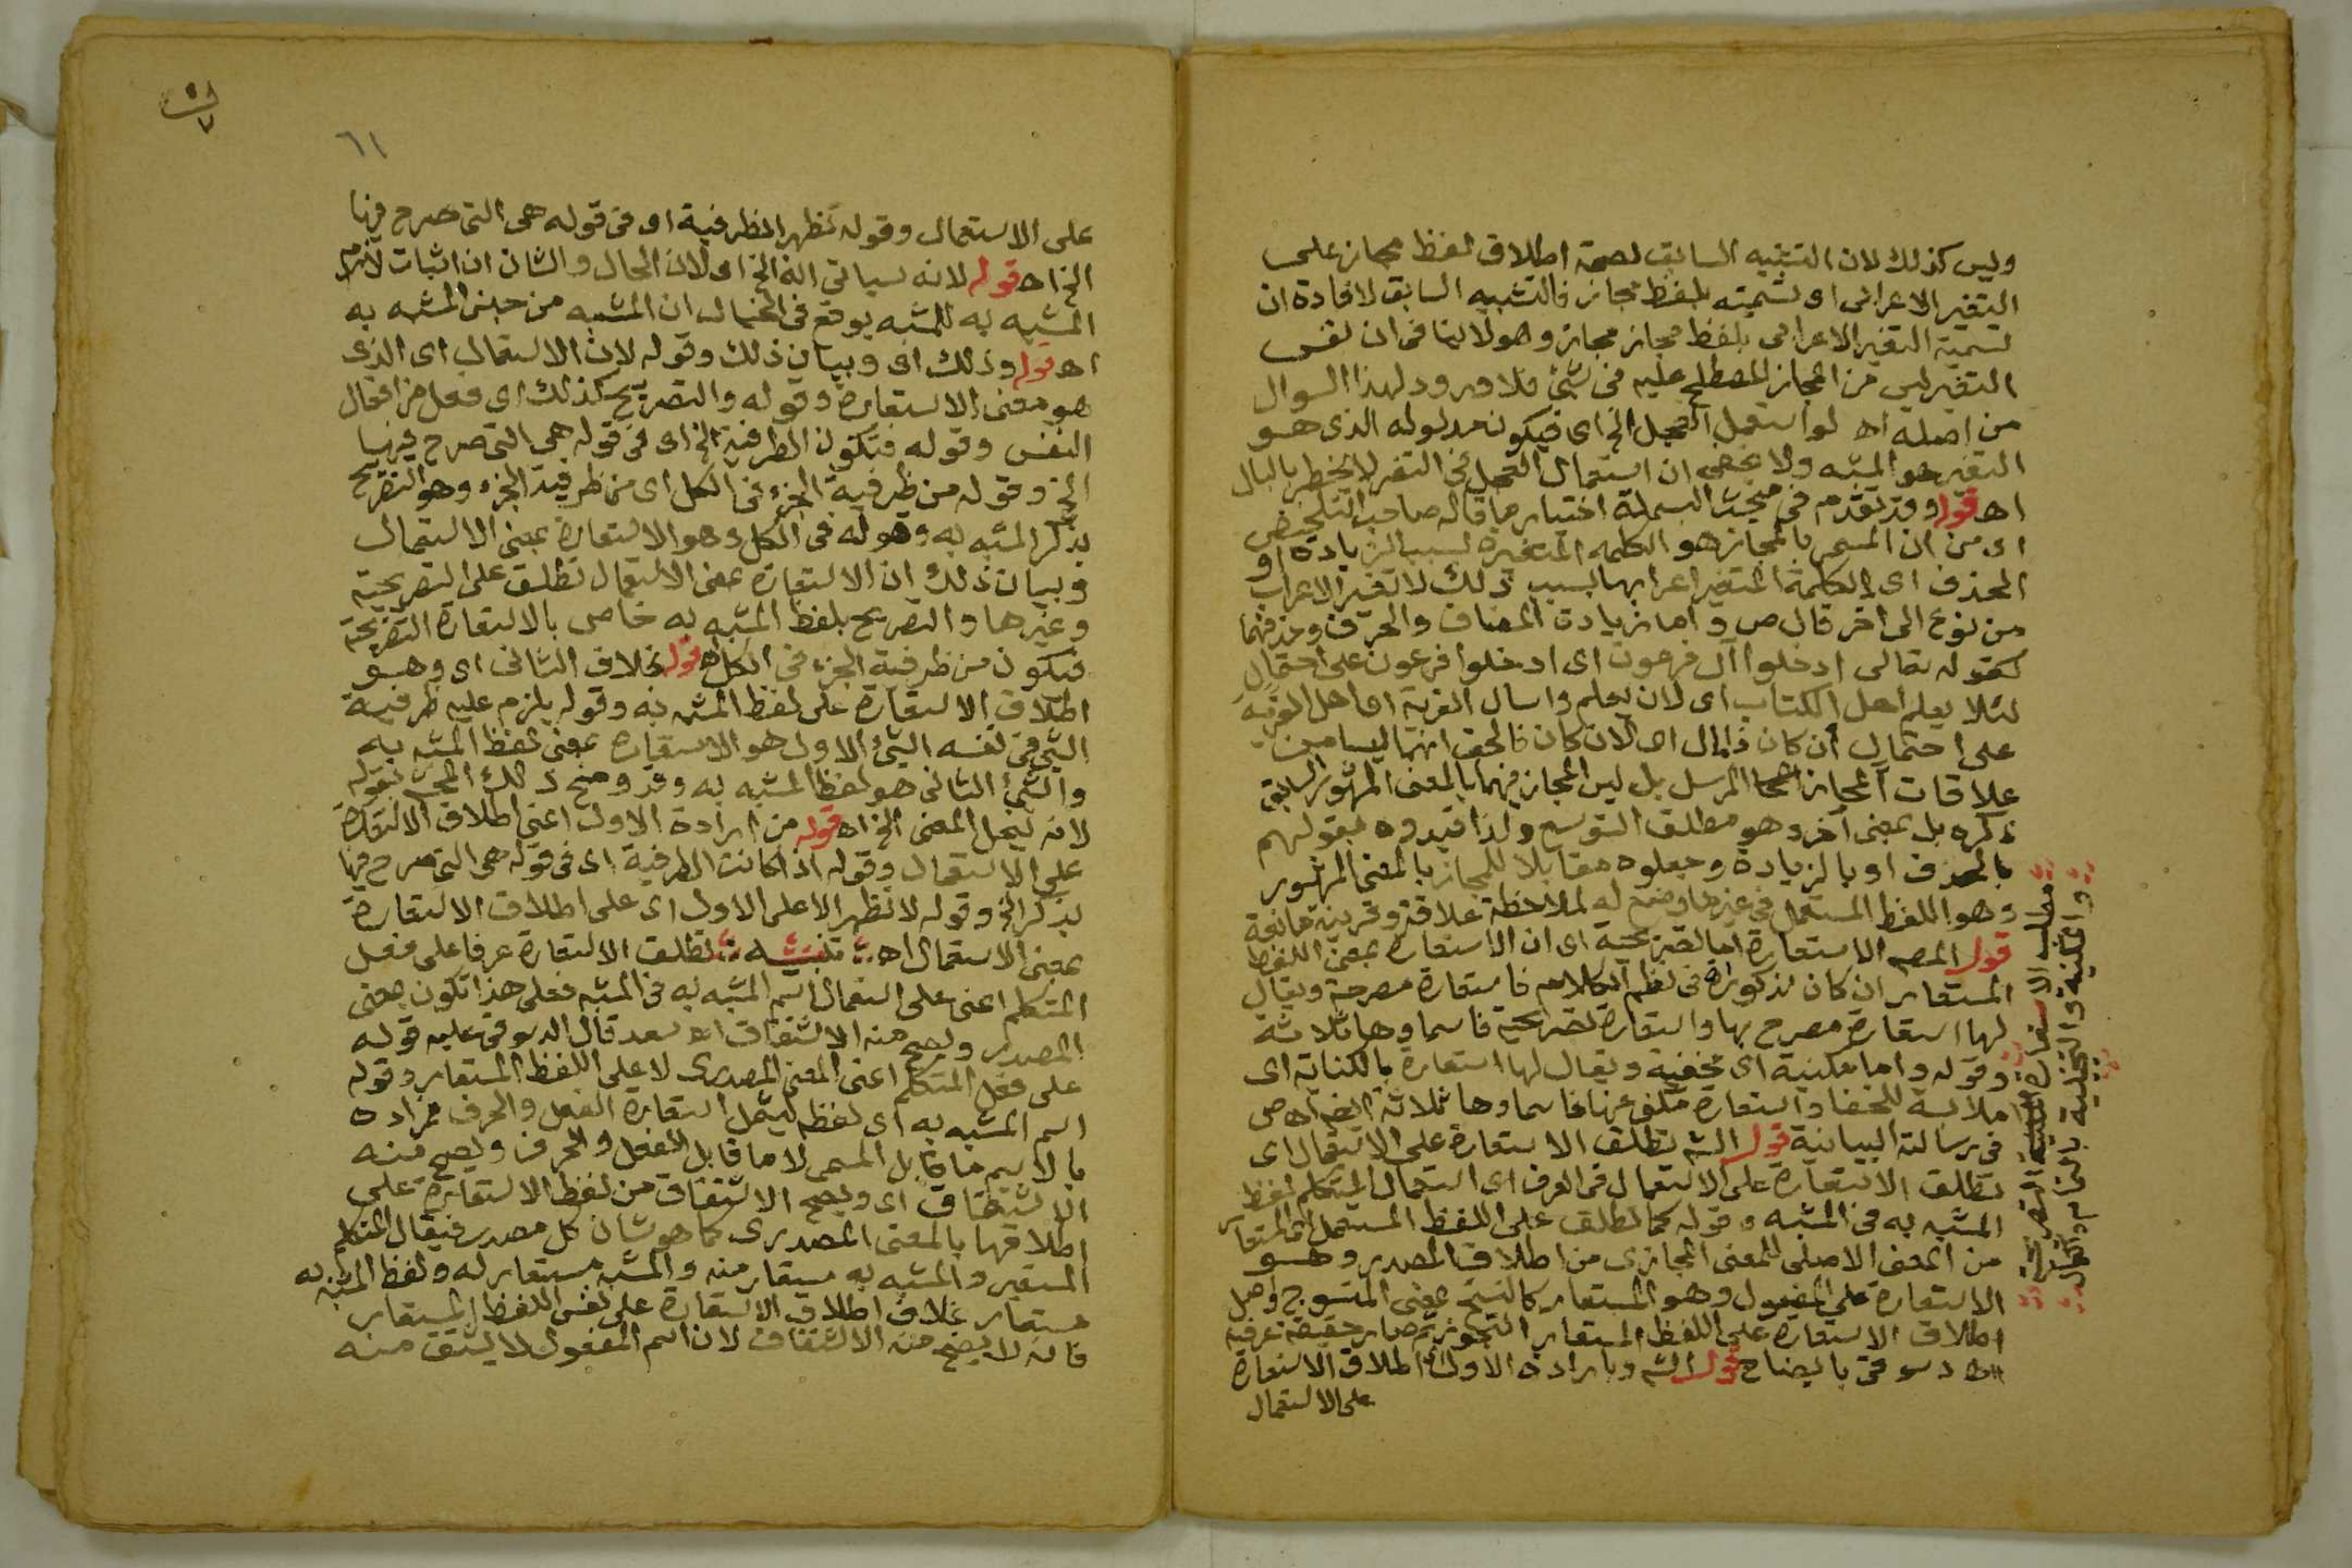 وليس كذلك لان التشبيه السابق لصحة اطلاق لفظ مجاز على
التغير الاعرابى او تسميته بلفظ مجاز فالتشبيه السابق لافادة ان
تسمية التغير الاعرابى بلفظ مجاز مجاز وهو لا ينافى ان نفس
التغير ليس من المجاز المصطلح عليه فى شئ فلا ورود لهذا السوال
من اصله اه لو استعمل العجل الخ اى فيكون مدلوله الذى هو
التغير هو المشبه ولا يخفى ان استعمال العجل فى التغر لا يخطر بالبال
اه قوله وقد تقدم فى مبحث البسملة اختيار ما قاله صاحب التلخيص
اى من ان المسمى بالمجاز هو الكلمه المتغيرة لسبب الزيادة او
الحذف اى الكلمة المتغير اعرابها بسبب ذلك لا تغير الاعراب
من نوع الى اخر قال ص واما زيادة المضاف والحرف وحذفهما
كقوله تعالى ادخلوا آل فرعون اى ادخلوا فرعون على احتمال
لئلا يعلم اهل الكتاب اى لان يعلم واسال القرية اى اهل القرية
على احتمال ان كان ذا مال اى لان كان فالحق انهما ليسا من
علاقات المجاز المرسل بل ليس المجاز فيهما بالمعنى المشهور السابق
ذكره بل بمعنى آخر وهو مطلق التوسع ولذا قيدوه بقولهم
بالحذف او بالزيادة وجعلوه مقابلا للمجاز بالمعنى المشهور
وهو اللفظ المستعمل فى غير ما وضع له لملاحظة علاقة وقرينة مانعة
قوله المص الاستعارة اما تصريحية اى ان الاستعارة بمعنى اللفظ
المستعار ان كان مذكورا فى نظم الكلام فاستعارة مصرحة ويقال
لها استعارة مصرح بها واستعارة تصريحية فاسماوها ثلاثة
وقوله واما مكنية اى مخفية ويقال لها استعارة بالكناية اى
ملابسة للخفا واستعارة مكنى عنها فاسماوها ثلاثة ايضا اه ص
فى رسالته البيانية قوله الش تطلق الاستعارة على الاستعمال اى
تطلق الاستعارة على الاستعمال فى العرف اى استعمال المتكلم لفظ
المشبه به فى المشبه وقوله كما تطلق على اللفظ المستعمل اى المستعار
من المعنى الاصلى للمعنى المجازى من اطلاق المصدر وهو
الاستعارة على المفعول وهو المستعار كالنسج بمعنى المنسوج وهل
اطلاق الاستعارة على اللفظ المستعار التجوز ثم صار حقيقة عرفية
اه دسوقى بايضاح قوله الش وبارادة الاول اطلاق الاستعارة
على الاستعمال
مطلب الاستعارة المكنية التصريحية
والمكنية والتخلية
٦١
على الاستعمال وقوله تظهر الظرفية اى فى قوله هى التى صرح فيها
الخ اه قوله لانه سياتى انه الخ اى لان الحال والشان ان اثبات لازم
المشبه به للمشبه يوقع فى الخيال ان المشبه من جنس المشبه به
اه قوله وذلك اى وبيان ذلك وقوله لان الاستعمال اى الذى
هو معنى الاستعارة وقوله والتصريح كذلك اى فعل من افعال
النفس وقوله فتكون الظرفية الخ اى فى قوله هى التى صرح فيها
الخ وقوله من ظرفية الجزء فى الكل اى من ظرفية الجزء وهو التصريح
بذكر المشبه به وقوله فى الكل وهو الاستعارة بمعنى الاستعمال
وبيان ذلك ان الاستعارة بمعنى الاستعمال تطلق على التصريحية
وغيرها والتصريح بلفظ المشبه به خاص بالاستعارة التصريحية
فيكون من ظرفية الجزء فى الكل اه قوله بخلاف الثانى اى وهو
اطلاق الاستعارة على لفظ المشبه به وقوله يلزم عليه ظرفية
الشئ فى نفسه الشئ الاول هو الاستعارة بمعنى لفظ المشبه به
والشئ الثانى هو لفظ المشبه به وقد وضح ذلك المحشى بقوله
لانه ينحل المعنى الخ اه قوله من ارادة الاول اعنى اطلاق الاستعارة
على الاستعمال وقوله اذا كانت الظرفية اى فى قوله هى التى صرح فيها
بذكر الخ وقوله لا تظهر الا على الاول اى على اطلاق الاستعارة
بمعنى الاستعمال اه تنبيه تطلق الاستعارة عرفا على فعل
المتكلم اعنى على استعمال اسم المشبه به فى المشبه فعلى هذا تكون بمعنى
المصدر ويصح منه الاشتقاق اه سعد قال الدسوقى عليه قوله
على فعل المتكلم اعنى المعنى المصدرى لا على اللفظ المستعار وقوله
اسم المشبه به اى لفظه ليشمل استعارة الفعل والحرف فمراده
بالاسم ما قابل المسمى لا ما قابل الفعل والحرف ويصح منه
الاشتقاق اى ويصح الاشتقاق من لفظ الاستعارة على
اطلاقها بالمعنى المصدرى كما هو شان كل مصدر فيقال المتكلم
المستعير والمشبه به مستعار منه والمشبه مستعار له ولفظ المشبه به
مستعار بخلاف اطلاق الاستعارة على نفس اللفظ المستعار
فانه لا يصح منه الاشتقاق لان اسم المفعول لا يشتق منه